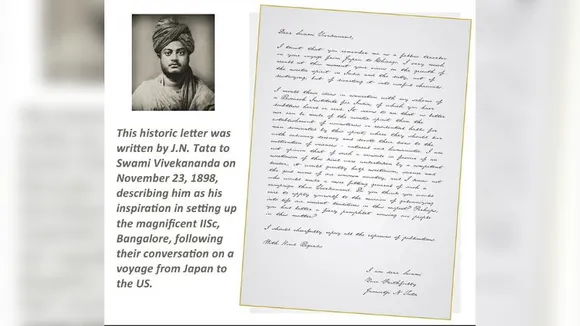 This historic letter was
written by J.N. Tata to
Swami Vivekananda on
November 23, 1898,
describing him as his
inspiration in setting up
the magnificent IISc,
Bangalore, following
their conversation on a
voyage from Japan to
the US.
Dear Swami Vivekananda,
I trust that you remember me as a fellow traveller
in your voyage from Japan to Chicago. I very much
recall at this moment your views on the growth of
the ascetic spirit in India and the duty, not of
destroying, but of diverting it into useful channels.
I recall these ideas in connection with my scheme of
a Research Institute for India, of which you have
doubtless heard or read. It seems to me that no better
use can be made of the ascetic spirit than the
establishment of monasteries or residential halls for
men dominated by this spirit, where they should live
with ordinary decency and devote their lives to the
cultivation of sciences - natural and humanistic. I am
of opinion that if such a crusade in favour of an
asceticism of this kind were undertaken by a competent
leader, it would greatly help asceticism, science and
the good name of our common country; and I know not
who would make a more fitting general of such a
campaign than Vivekananda. Do you think you would
care to apply yourself to the mission of galvanizing
into life our ancient traditions in this respect? Perhaps,
you had better a fiery pamphlet rousing our people
in this matter?
I should cheerfully defray all the expenses of publication.
With kind Regards
I am dear Swami
Yours Faithfully
Jamsetji N Tata